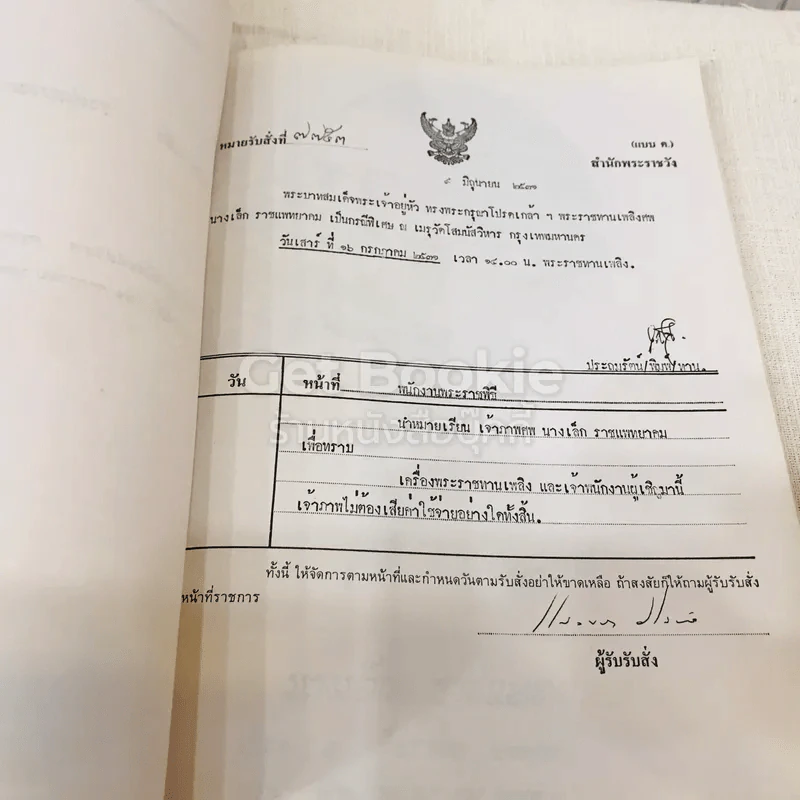 หมายรับสั่งที่ ๗๗๕๓
(แบบ ค.)
สำนักพระราชวัง
๙ มิถุนายน ๒๕๓๗
พระบาทสมเด็จพระเจ้าอยู่หัว ทรงพระกรุณาโปรดเกล้า ฯ พระราชทานเพลิงศพ
นางเล็ก ราชแพทยาคม เป็นกรณีพิเศษ ณ เมรุวัดโสมนัสวิหาร กรุงเทพมหานคร
วันเสาร์ ที่ ๑๖ กรกฎาคม ๒๕๓๗ เวลา ๑๔.๐๐ น. พระราชทานเพลิง.
ประถมรัตน์/พิมพ์/ทาน.
วัน หน้าที่ พนักงานพระราชพิธี
นำหมายเรียน เจ้าภาพศพ นางเล็ก ราชแพทยาคม
เพื่อทราบ
เครื่องพระราชทานเพลิง และเจ้าพนักงานผู้เชิญมานี้
เจ้าภาพไม่ต้องเสียค่าใช้จ่ายอย่างใดทั้งสิ้น.
ทั้งนี้ ให้จัดการตามหน้าที่และกำหนดวันตามรับสั่งอย่าให้ขาดเหลือ ถ้าสงสัยก็ให้ถามผู้รับรับสั่ง
หน้าที่ราชการ
ผู้รับรับสั่ง
Get Bookie
ร้านหนังสือบุ๊คกี้